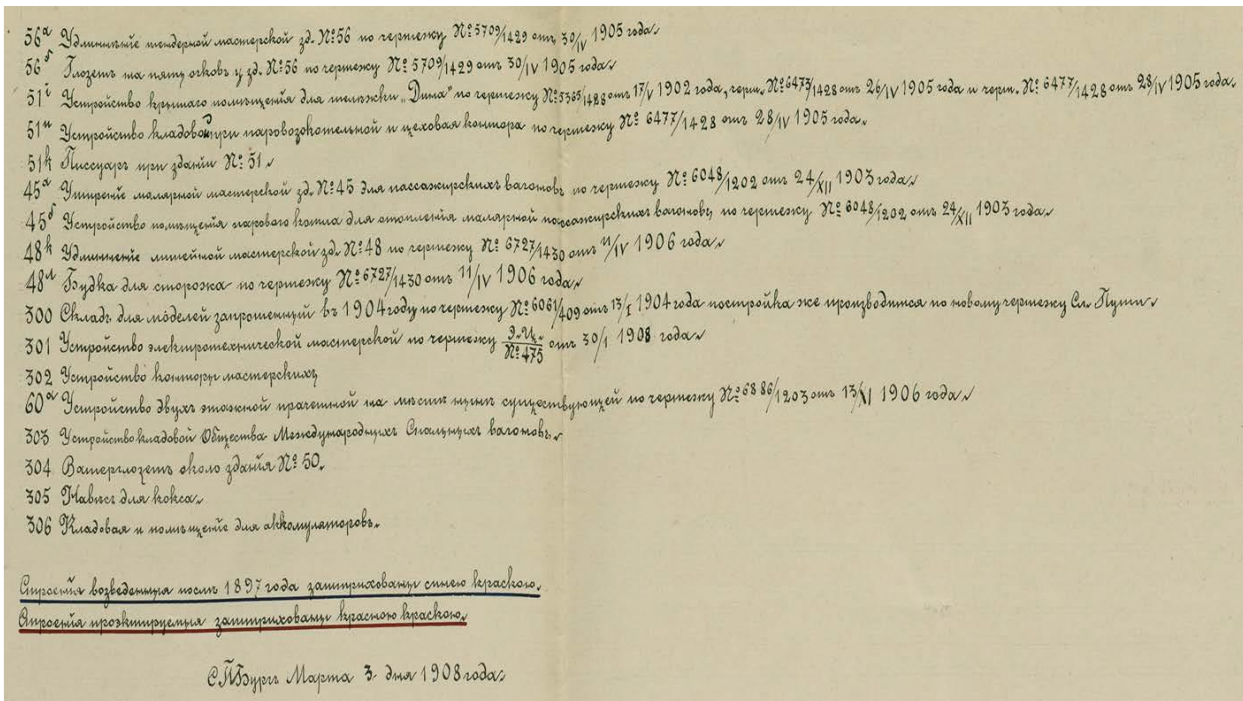 56а Удлиненiе тендерной мастерской зд. № 56 по чертежу № 5709/1429 отъ 30/IV 1905 года.
56б Клозетъ на пять очковъ у зд. № 56 по чертежу № 5709/1429 отъ 30/IV 1905 года.
51i Устройство крытаго помѣщенiя для тележки „Дина" по чертежу № 5365/1428 отъ 17/V 1902 года, черт. № 6473/1428 отъ 26/IV 1905 года и черт. № 6477/1428 отъ 28/IV 1905 года.
51и Устройство кладовой при паровозокотельной и цеховая контора по чертежу № 6477/1428 отъ 28/IV 1905 года.
51k Писсуаръ при зданiи № 51.
45а Уширенiе малярной мастерской зд. № 45 для пассажирскихъ вагоновъ по чертежу № 6048/1202 отъ 24/XII 1903 года.
45б Устройство помѣщенiя парового котла для отопленiя малярной пассажирскихъ вагоновъ, по чертежу № 6048/1202 отъ 24/XII 1903 года.
48k Удлиненiе литейной мастерской зд. № 48 по чертежу № 6727/1430 отъ 11/IV 1906 года.
48л Будка для сторожа по чертежу № 6727/1430 отъ 11/IV 1906 года.
300 Складъ для моделей запрошенный въ 1904 году по чертежу № 6061/409 отъ 13/I 1904 года постройка же производится по новому чертежу Сл. Пути.
301 Устройство электротехнической мастерской по чертежу № 475 отъ 30/I 1908 года.
302 Устройство конторы мастерскихъ
60а Устройство двухъ этажной прачешной на мѣстѣ нынѣ существующей по чертежу № 6886/1203 отъ 13/XI 1906 года.
303 Устройство кладовой Общества Международныхъ Спальныхъ вагоновъ.
304 Ватерклозетъ около зданiя № 50.
305 Навѣсъ для кокса.
306 Кладовая и помѣщенiе для аккомуляторовъ.
Строенiя возведенныя послѣ 1897 года заштрихованы синею краскою.
Строенiя проэктируемыя заштрихованы красною краскою.
С.П.Бургъ Марта 3 дня 1908 года.